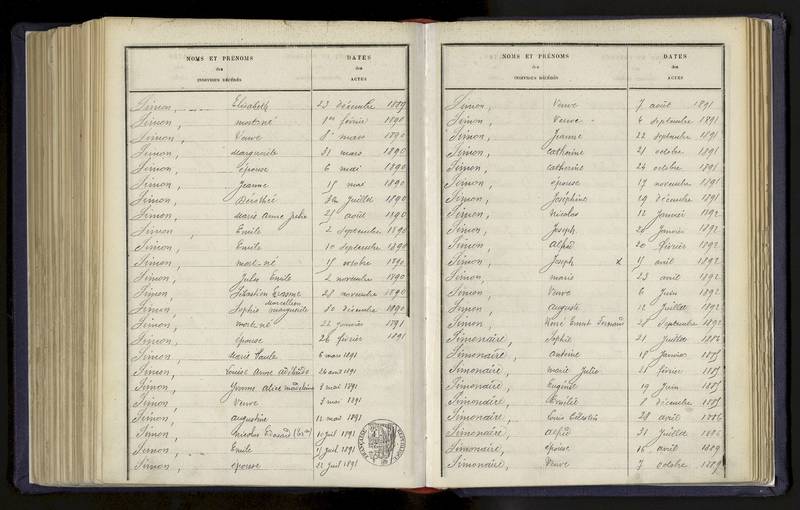 NOMS ET PRÉNOMS
des
INDIVIDUS DÉCÉDÉS
DATES
des
ACTES
Simon, Elisabeth 23 décembre 1889
Simon, mort-né 1er février 1890
Simon, Veuve 8 mars 1890
Simon, Marguerite 31 mars 1890
Simon, épouse 6 mai 1890
Simon, Jeanne 15 mai 1890
Simon, Juillet 1890
Simon, Marie Anne Julie 25 août 1890
Simon, Emile 2 Septembre 1890
Simon, Emile 10 Septembre 1890
Simon, mort-né 15 octobre 1890
Simon, Jules Emile 2 novembre 1890
Simon, Sébastien Erasme 28 novembre 1890
Simon, Sophie Marguerite 30 décembre 1890
Simon, mort né 22 janvier 1891
Simon, épouse 26 février 1891
Simon, Marie Paule 6 mars 1891
Simon, Louise Anne 24 avril 1891
Simon, Yvonne Alice 3 mai 1891
Simon, Veuve 7 mai 1891
Simon, augustine 12 mai 1891
Simon, Nicolas 10 Juil 1891
Simon, Emile 15 Juil 1891
Simon, épouse 21 Juil 1891
NOMS ET PRÉNOMS
des
INDIVIDUS DÉCÉDÉS
DATES
des
ACTES
Simon, Veuve 7 août 1891
Simon, Veuve 4 Septembre 1891
Simon, Jeanne 22 Septembre 1891
Simon, Catherine 21 octobre 1891
Simon, Catherine 24 octobre 1891
Simon, épouse 17 novembre 1891
Simon, Joséphine 19 décembre 1891
Simon, Nicolas 12 Janvier 1892
Simon, Joseph 24 Janvier 1892
Simon, Alfred 20 février 1892
Simon, Joseph x 15 avril 1892
Simon, Marie 23 avril 1892
Simon, Veuve 6 Juin 1892
Simon, Auguste 12 Juillet 1892
Simon, René Ernest Fernand 28 Septembre 1892
Simonaire, Sophie 21 Juillet 1884
Simonaire, Antoine 18 Janvier 1885
Simonaire, Marie Julie 21 février 1885
Simonaire, Eugénie 19 Juin 1885
Simonaire, Emilie 8 décembre 1885
Simonaire, Louis Célestin 28 avril 1886
Simonaire, Alfred 31 Juillet 1886
Simonaire, épouse 16 avril 1889
Simonaire, Veuve 7 octobre 1889